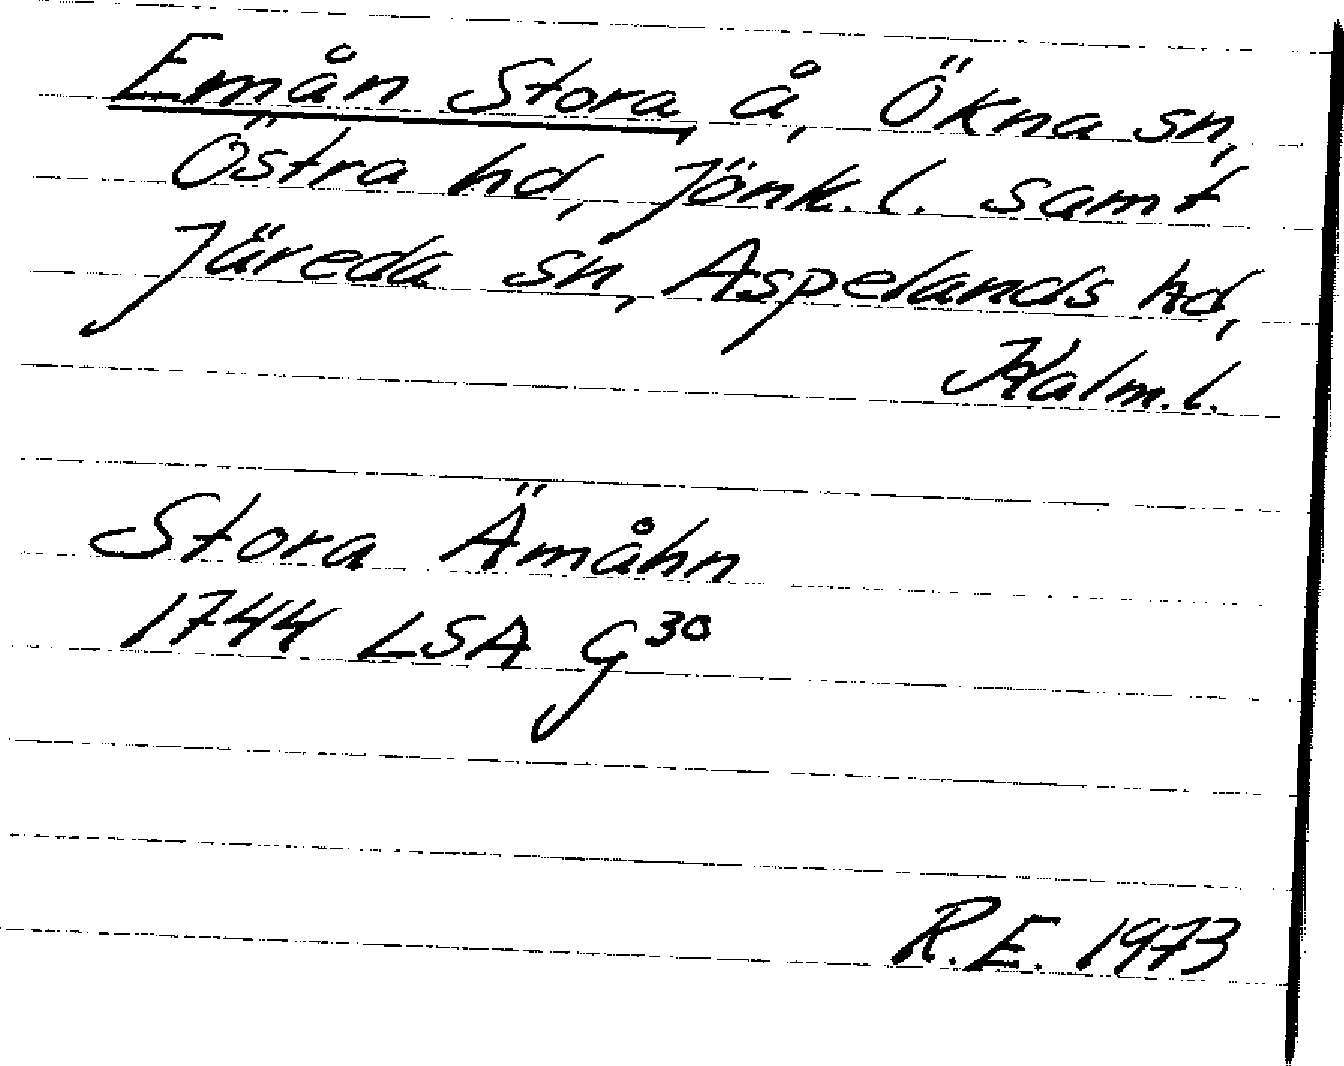 Emån Stora, å, Ökna sn,
Östra hd, Jönk. l. samt
Järeda sn, Aspelands hd,
Kalm. l.
Stora Ämåhn
1744 LSA G³⁰
R.E. 1973